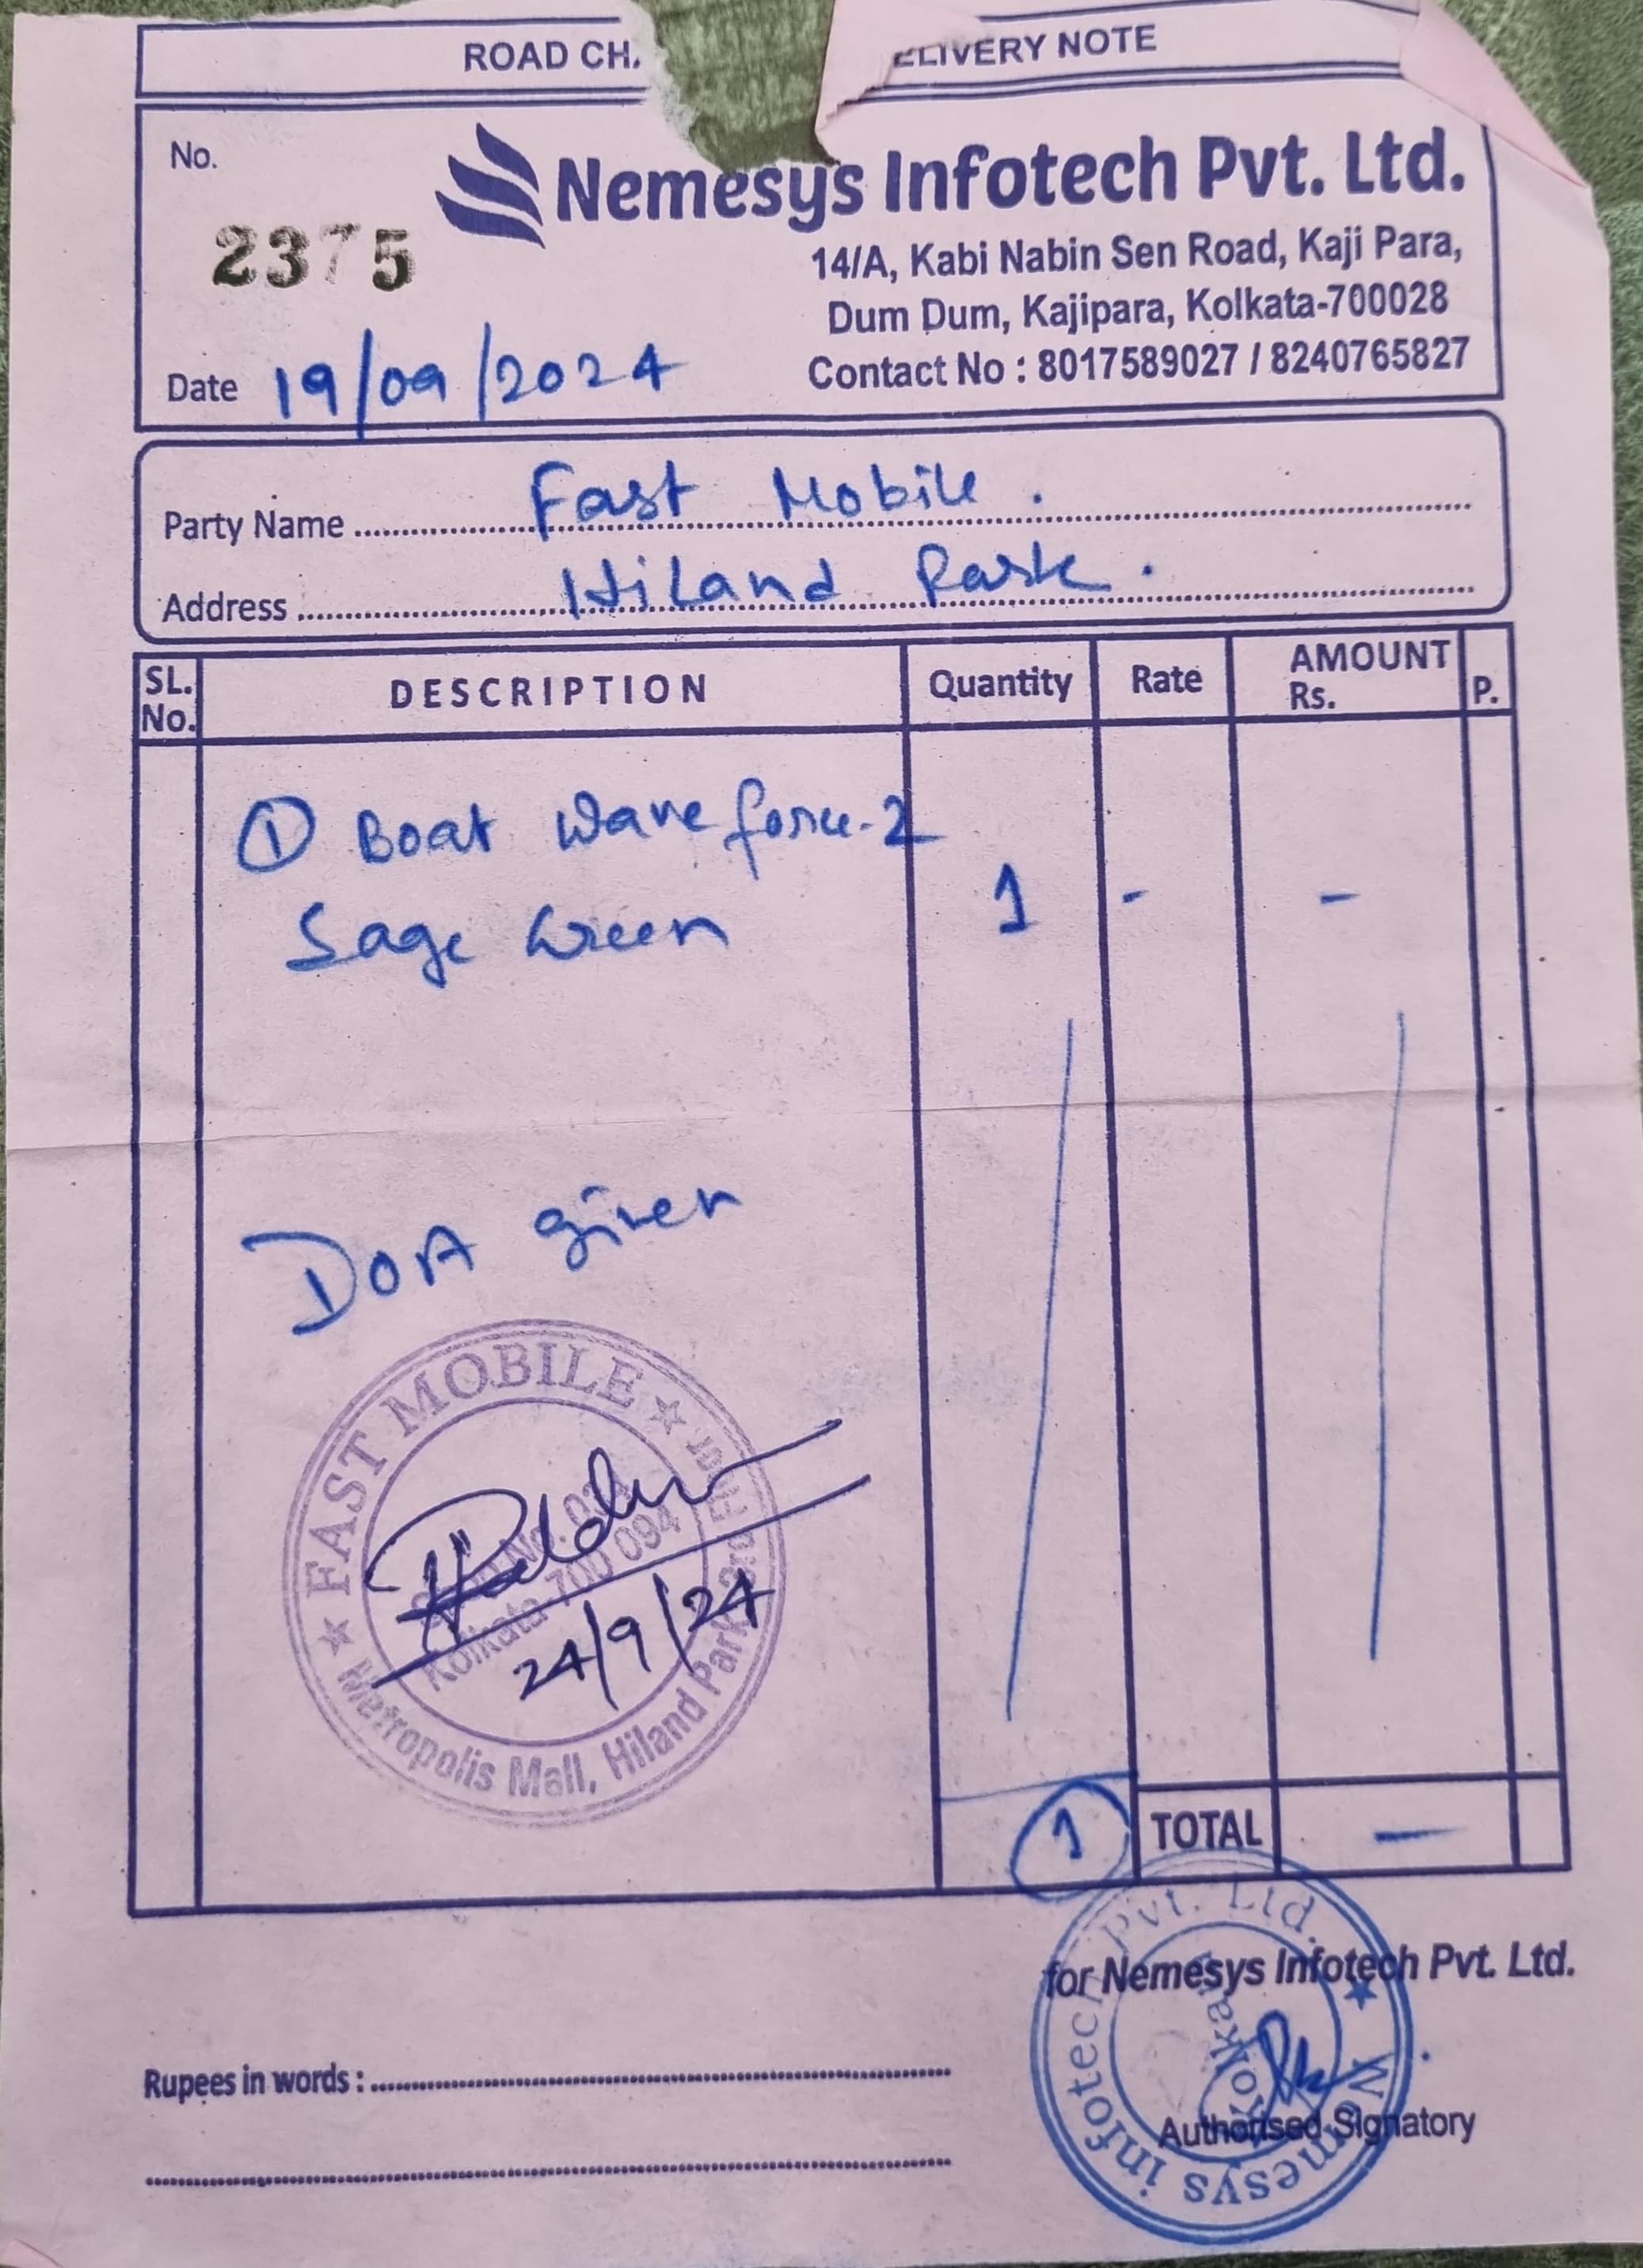 ROAD CH
ELIVERY NOTE
No.
2375
Nemesys Infotech Pvt. Ltd.
14/A, Kabi Nabin Sen Road, Kaji Para,
Dum Dum, Kajipara, Kolkata-700028
Contact No : 8017589027 / 8240765827
Date 19/09/2024
Party Name Fast Mobile .
Address Hiland Park .
SL. No. DESCRIPTION Quantity Rate AMOUNT Rs. P.
① Boat Wave force-2
Sage Green 1 - -
DOA given
★ FAST MOBILE ★
Kolkata 700 094
Metropolis Mall, Hiland Park
24/9/24
1 TOTAL —
for Nemesys Infotech Pvt. Ltd.
Nemesys infotech Pvt. Ltd. ★
Kolkata
Rupees in words :
Authorised Signatory